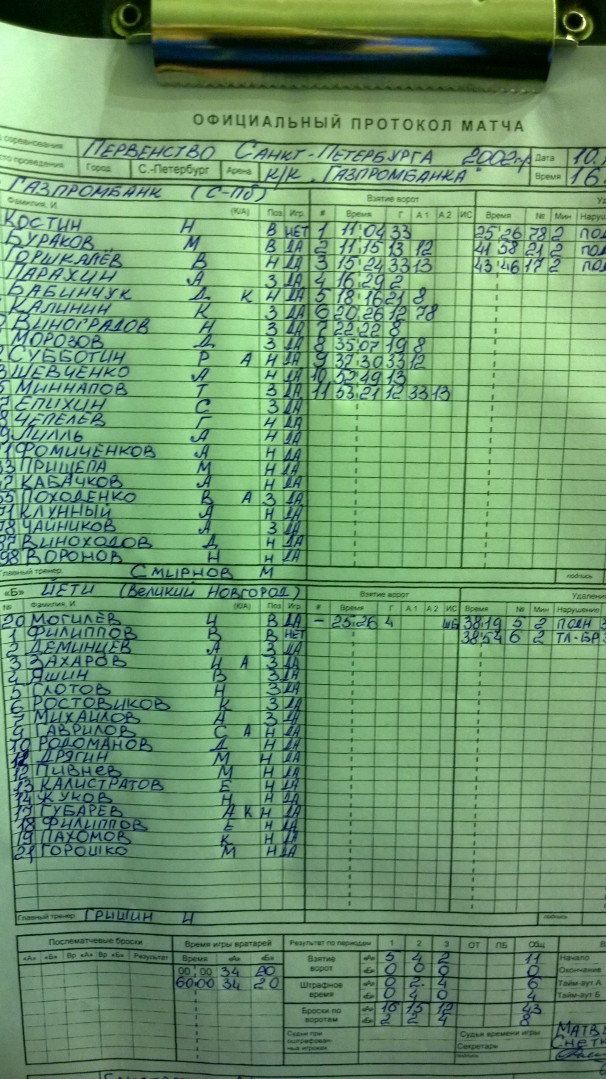 ОФИЦИАЛЬНЫЙ ПРОТОКОЛ МАТЧА
соревнования ПЕРВЕНСТВО САНКТ-ПЕТЕРБУРГА 2002 Дата 10.
проведения Город С.-Петербург Арена К/К "ГАЗПРОМБАНКА" Время 16
ГАЗПРОМБАНК (С-ПБ) Взятие ворот
Фамилия, И. (К/А) Поз Игр. # Время Г А1 А2 ИС Время № Мин
КОСТИН Н В НЕТ 1 11 04 33 25 26 78 2
БУРАКОВ М В ДА 2 11 15 13 12 41 58 21 2
ГОРШКАЛЁВ В Н ДА 3 15 24 33 13 43 46 17 2
ПАРАХИН А З ДА 4 16 29 2
БАБИНЧУК Д К Н ДА 5 18 16 21 8
КАЛИНИН К З ДА 6 20 26 12 78
ВИНОГРАДОВ Н З ДА 7 22 22 8
МОРОЗОВ Д З ДА 8 35 07 19 8
СУББОТИН Р А Н ДА 9 37 30 33 12
ШЕВЧЕНКО А Н ДА 10 52 49 13
МИННАПОВ Т З ДА 11 53 21 12 33 13
ЕПИХИН С З ДА
ЧЕПЕЛЕВ Г Н ДА
ЛИЛЛЬ А Н ДА
ФОМИЧЕНКОВ А Н ДА
ПРИЩЕПА М Н ДА
КАБАЧКОВ А Н ДА
ПОХОДЕНКО В А З ДА
КЛУННЫЙ А Н ДА
ЧАЙНИКОВ А З ДА
ВИНОХОДОВ Д Н ДА
98 ВОРОНОВ Н Н ДА
Главный тренер СМИРНОВ М подпись
«Б» ЙЕТИ (ВЕЛИКИЙ НОВГОРОД) Взятие ворот
№ Фамилия, И. (К/А) Поз Игр. # Время Г А1 А2 ИС Время № Мин Нарушение
20 МОГИЛЕВ И В ДА - 25 26 4 ШБ 38 19 5 2
1 ФИЛИППОВ В В НЕТ 38 54 6 2
2 ДЕМИНЦЕВ А З ДА
3 ЗАХАРОВ И А З ДА
4 ЯШИН В З ДА
5 ГЛОТОВ Н З ДА
6 РОСТОВИКОВ К З ДА
7 МИХАЙЛОВ А З ДА
9 ГАВРИЛОВ С А Н ДА
10 РОДОМАНОВ Д Н ДА
11 ДРЯГИН М Н ДА
12 ПИВНЕВ М Н ДА
13 КАЛИСТРАТОВ Е Н ДА
14 ЖУКОВ Н Н ДА
17 ГУБАРЕВ А К Н ДА
18 ФИЛИППОВ Е Н ДА
19 ПАХОМОВ К Н ДА
21 ГОРОШКО М Н ДА
Главный тренер ГРИШИН И подпись
Послематчевые броски Время игры вратарей Результат по периодам 1 2 3 ОТ ПБ Общ
«А» «Б» Вр «А» Вр «Б» Результат Время «А» «Б» Взятие ворот «А» 5 4 2 11 Начало
00 00 34 20 «Б» 0 0 0 0 Окончание
60 00 34 20 Штрафное время «А» 0 2 4 6 Тайм-аут А
«Б» 0 4 0 4 Тайм-аут Б
Броски по воротам «А» 16 15 12 43
«Б» 2 2 4 8
Судьи при оштрафованных игроках Судья времени игры
Секретарь
подпись